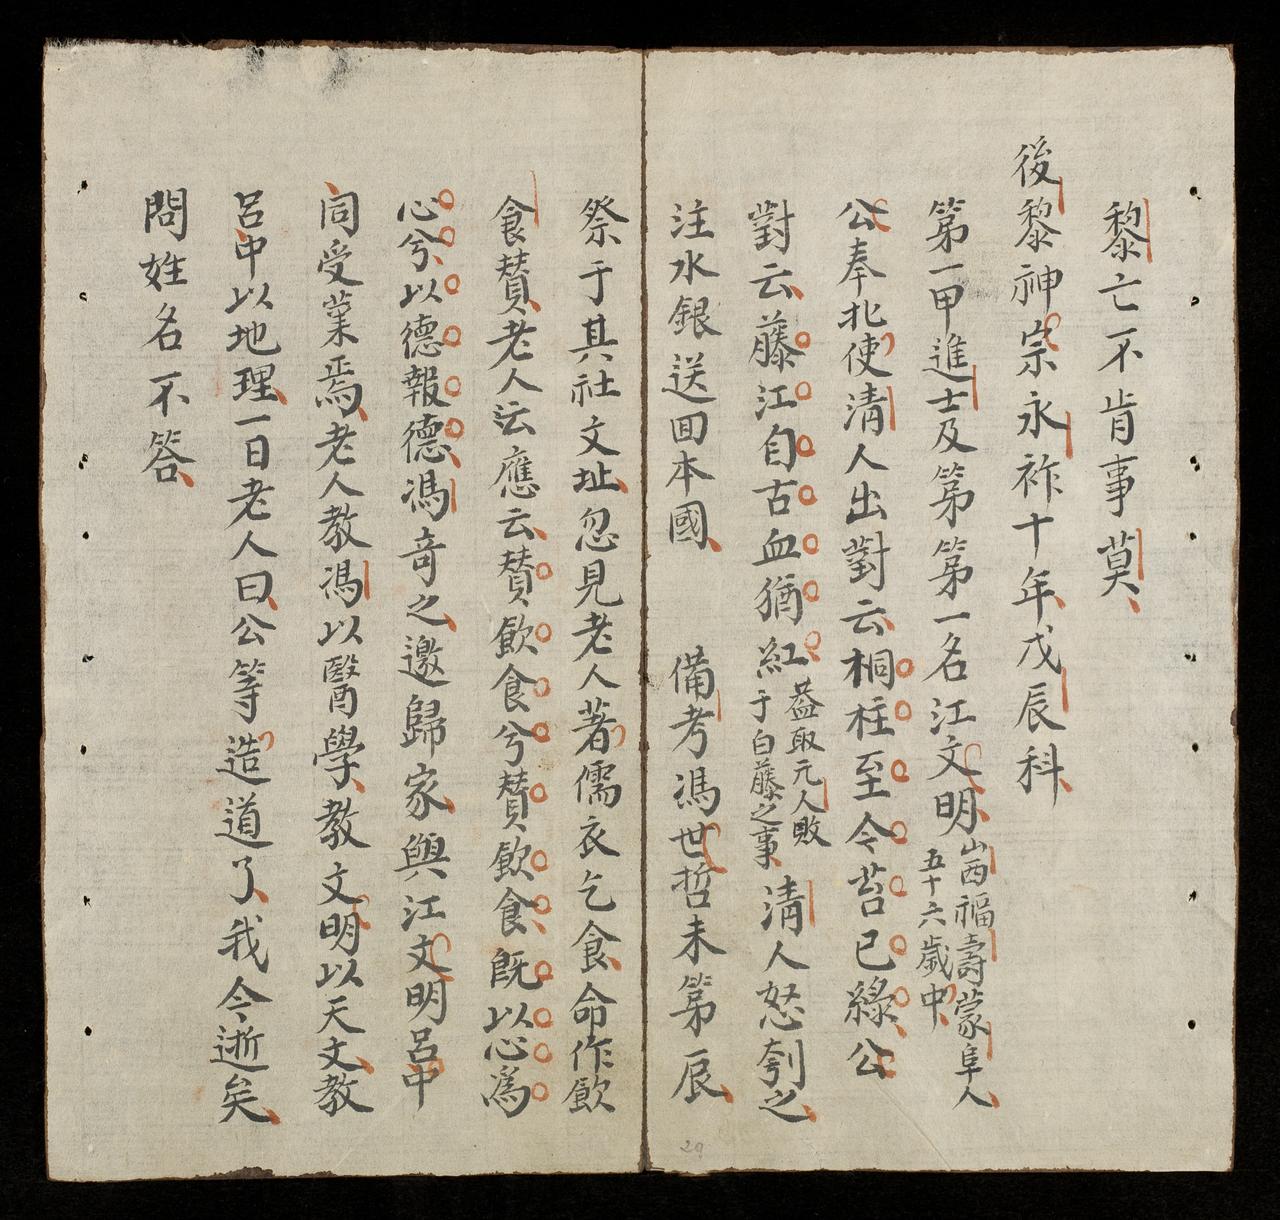 黎亡不肯事莫
後黎神宗永祚十年戊辰科
第一甲進士及第第一名江文明山西福壽蒙阜人五十六歲中
公奉北使清人出對云桐柱至令苔已綠公
對云藤江自古血猶紅葢取元人敗于白藤之事清人怒刳之
注水銀送回本國 備考馮世哲未第辰
祭于其社文址忽見老人著儒衣乞食命作飲
食賛老人沄應云賛飲食兮賛飲食既以心為
心兮以德報德馮竒之邀歸家與江文明呂中
同受業焉老人教馮以醫學教文明以天文教
呂中以地理一日老人曰公等造道了我今逝矣
問姓名不答
29